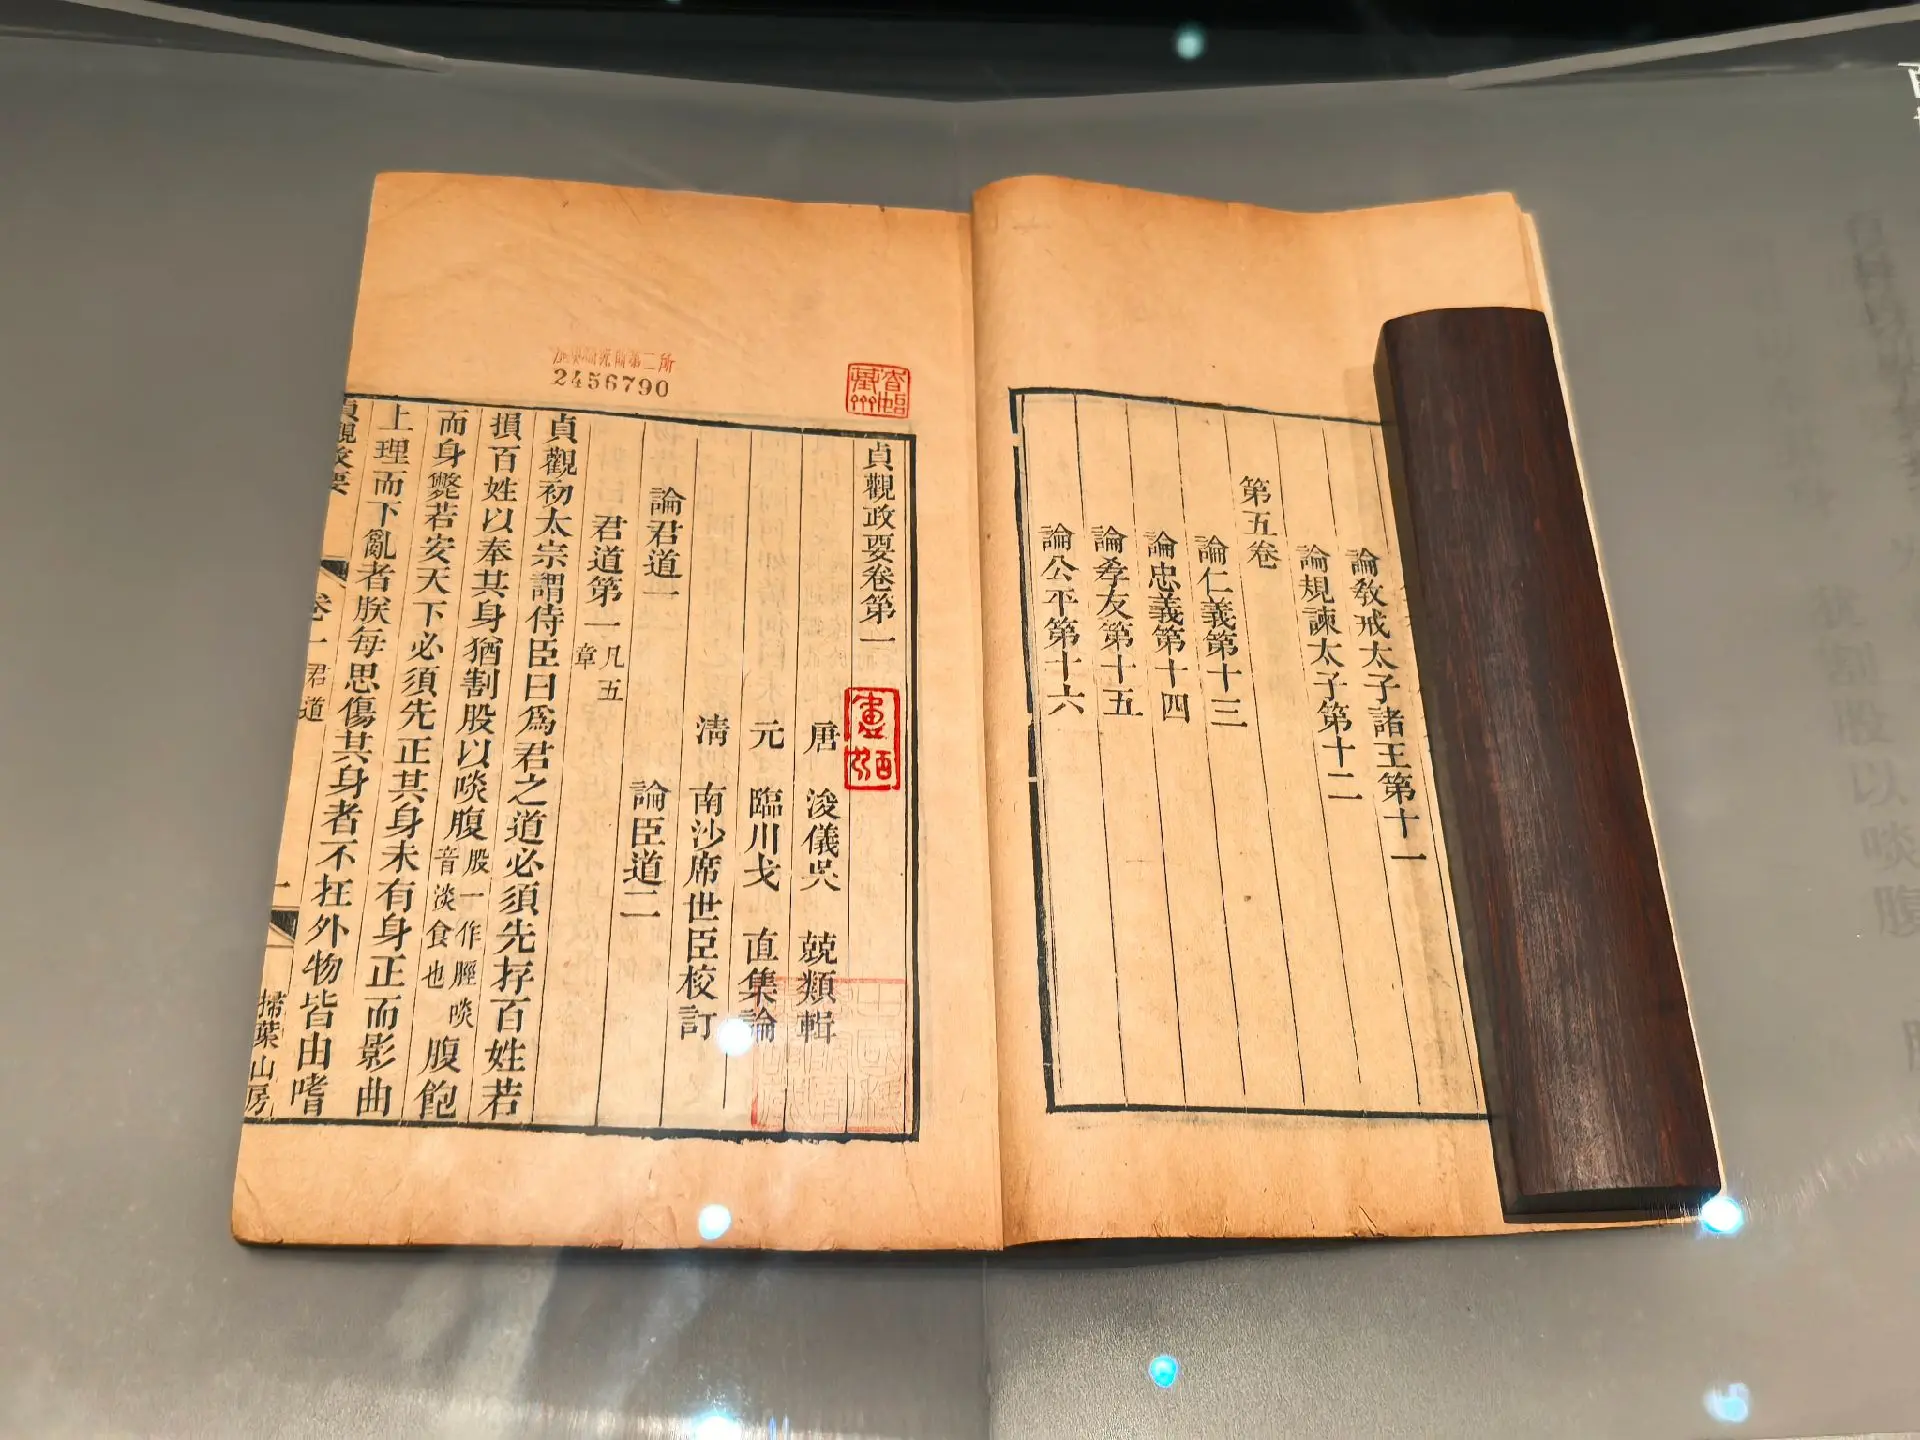 論教戒太子諸王第十一
論規諫太子第十二
第五卷
論仁義第十三
論忠義第十四
論孝友第十五
論公平第十六
2456790
貞觀政要卷第一
唐 浚儀吳 兢類輯
元 臨川戈 直集論
清 南沙席世臣校訂
論君道一 論臣道二
君道第一凡五章
貞觀初太宗謂侍臣曰爲君之道必須先存百姓若
損百姓以奉其身猶割股以啖腹股一作脛啖音淡食也腹飽
而身斃若安天下必須先正其身未有身正而影曲
上理而下亂者朕每思傷其身者不在外物皆由嗜
貞觀政要 卷一 君道 一 掃葉山房
割股以啖腹